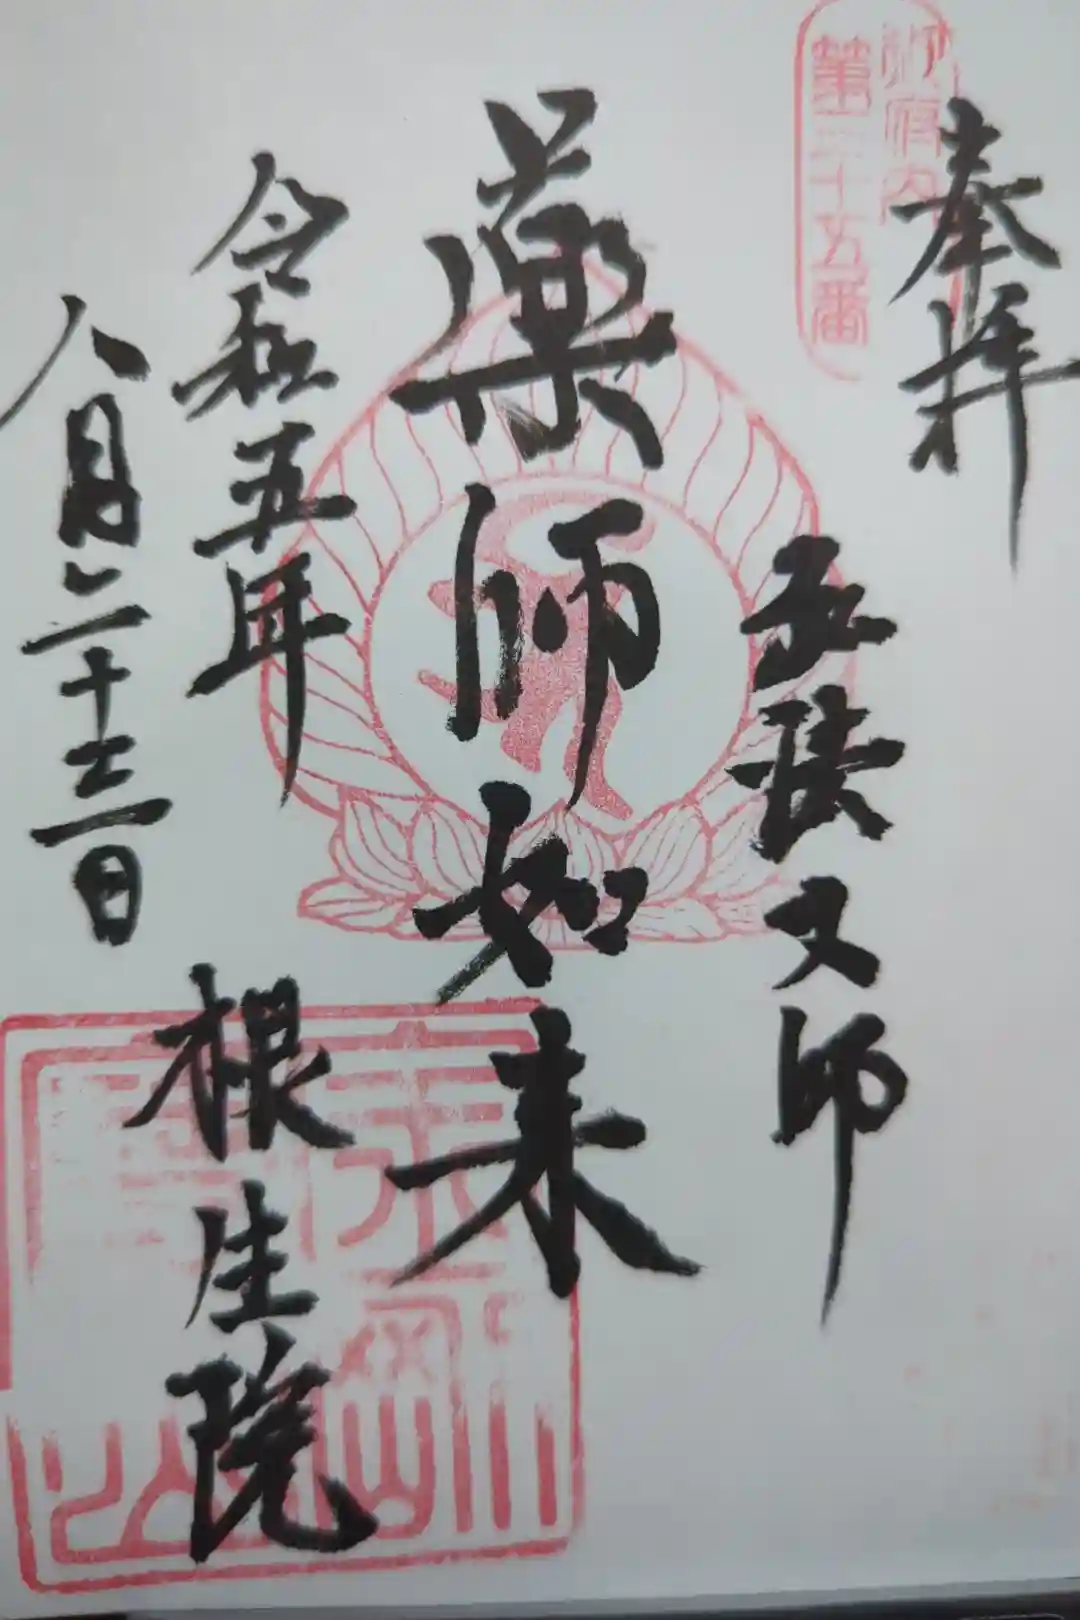 奉拝
御府内
第三十五番
薬師如来
令和五年
八月二十三日
根生院